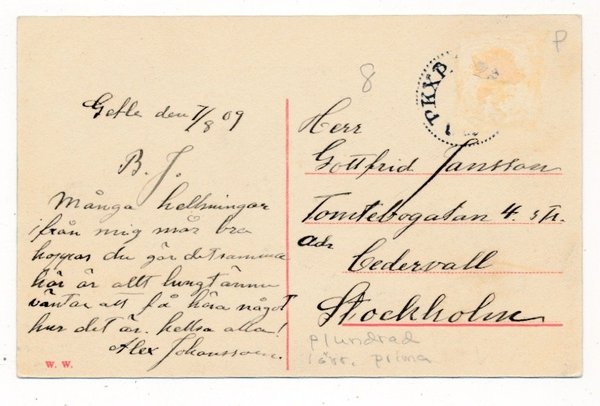 Gefle den 7/8 09
B. J.
Många helsningar
ifrån mig mår bra
hoppas du gör detsamma
här är allt lungt ännu
väntar att få höra något
hur det är. helsa alla!
Alex Johansson.
W. W.
8
P
PKXP
Herr
Gottfrid Jansson
Tomtebogatan 4. 3 tr.
adr.
Cedervall
Stockholm
plundrad
i övr. prima